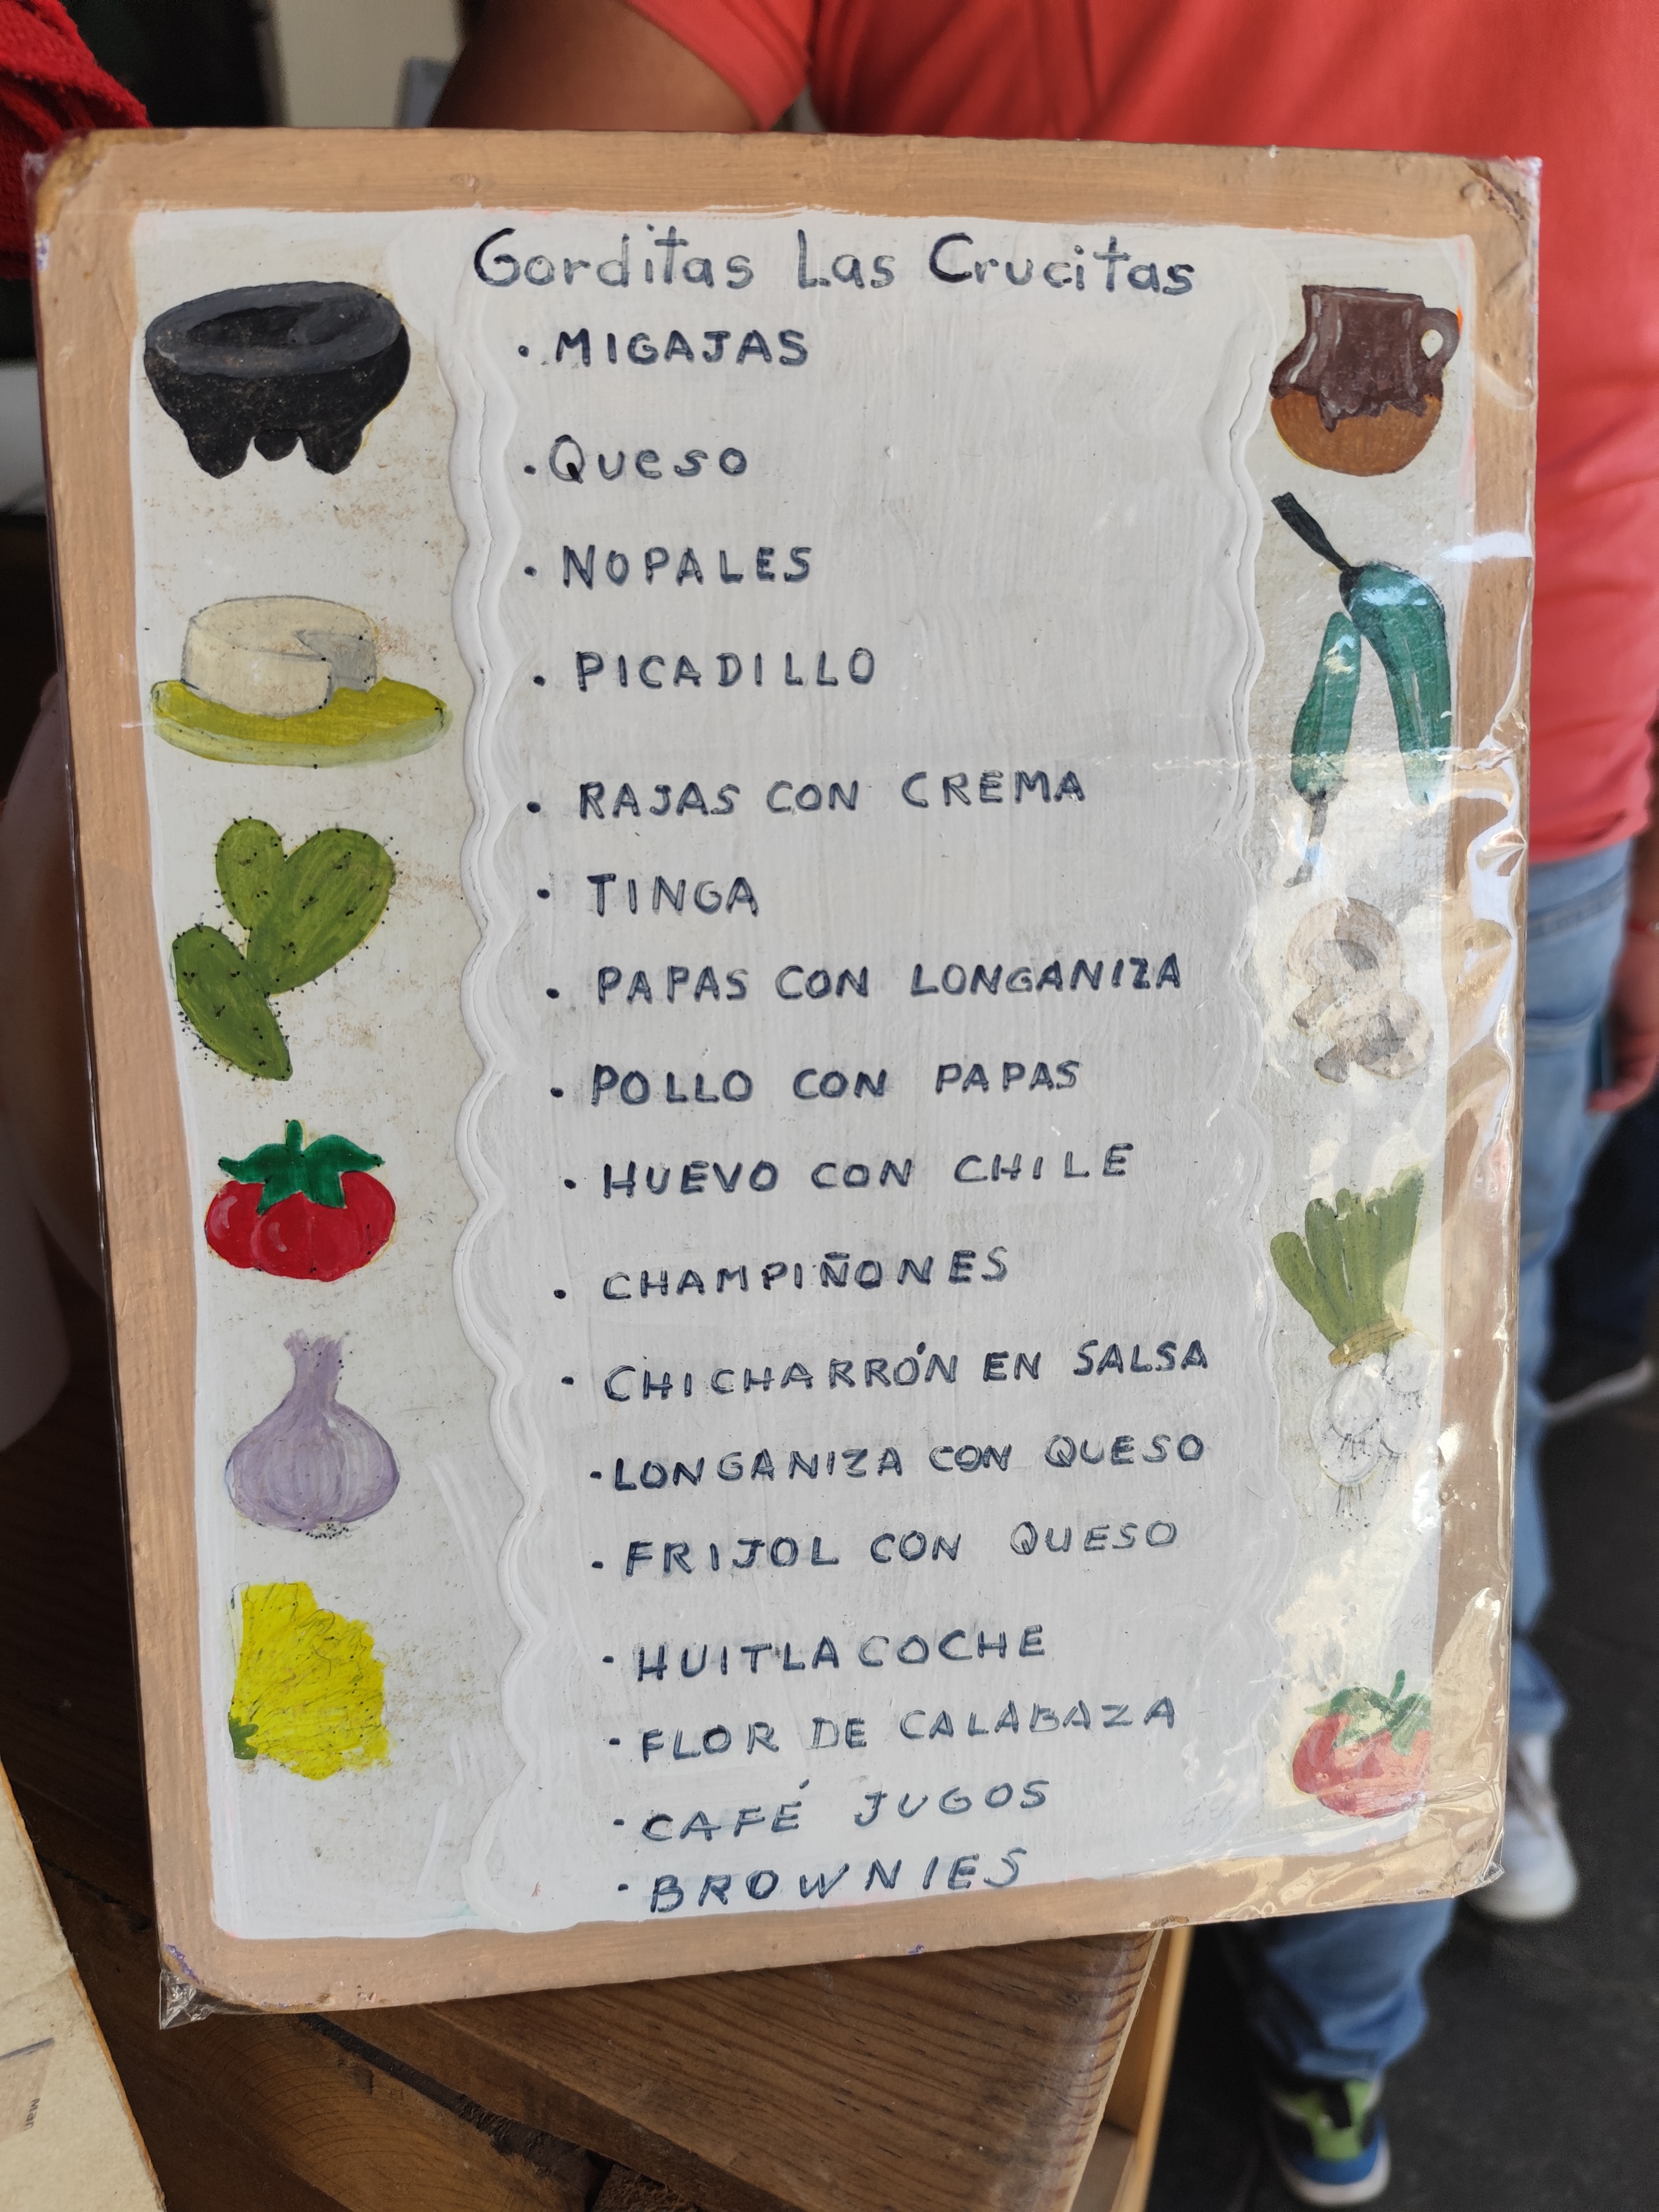 Gorditas Las Crucitas
. MIGAJAS
. Queso
. NOPALES
. PICADILLO
. RAJAS CON CREMA
. TINGA
. PAPAS CON LONGANIZA
. POLLO CON PAPAS
. HUEVO CON CHILE
. CHAMPIÑONES
. CHICHARRÓN EN SALSA
. LONGANIZA CON QUESO
. FRIJOL CON QUESO
. HUITLACOCHE
. FLOR DE CALABAZA
. CAFÉ JUGOS
. BROWNIES